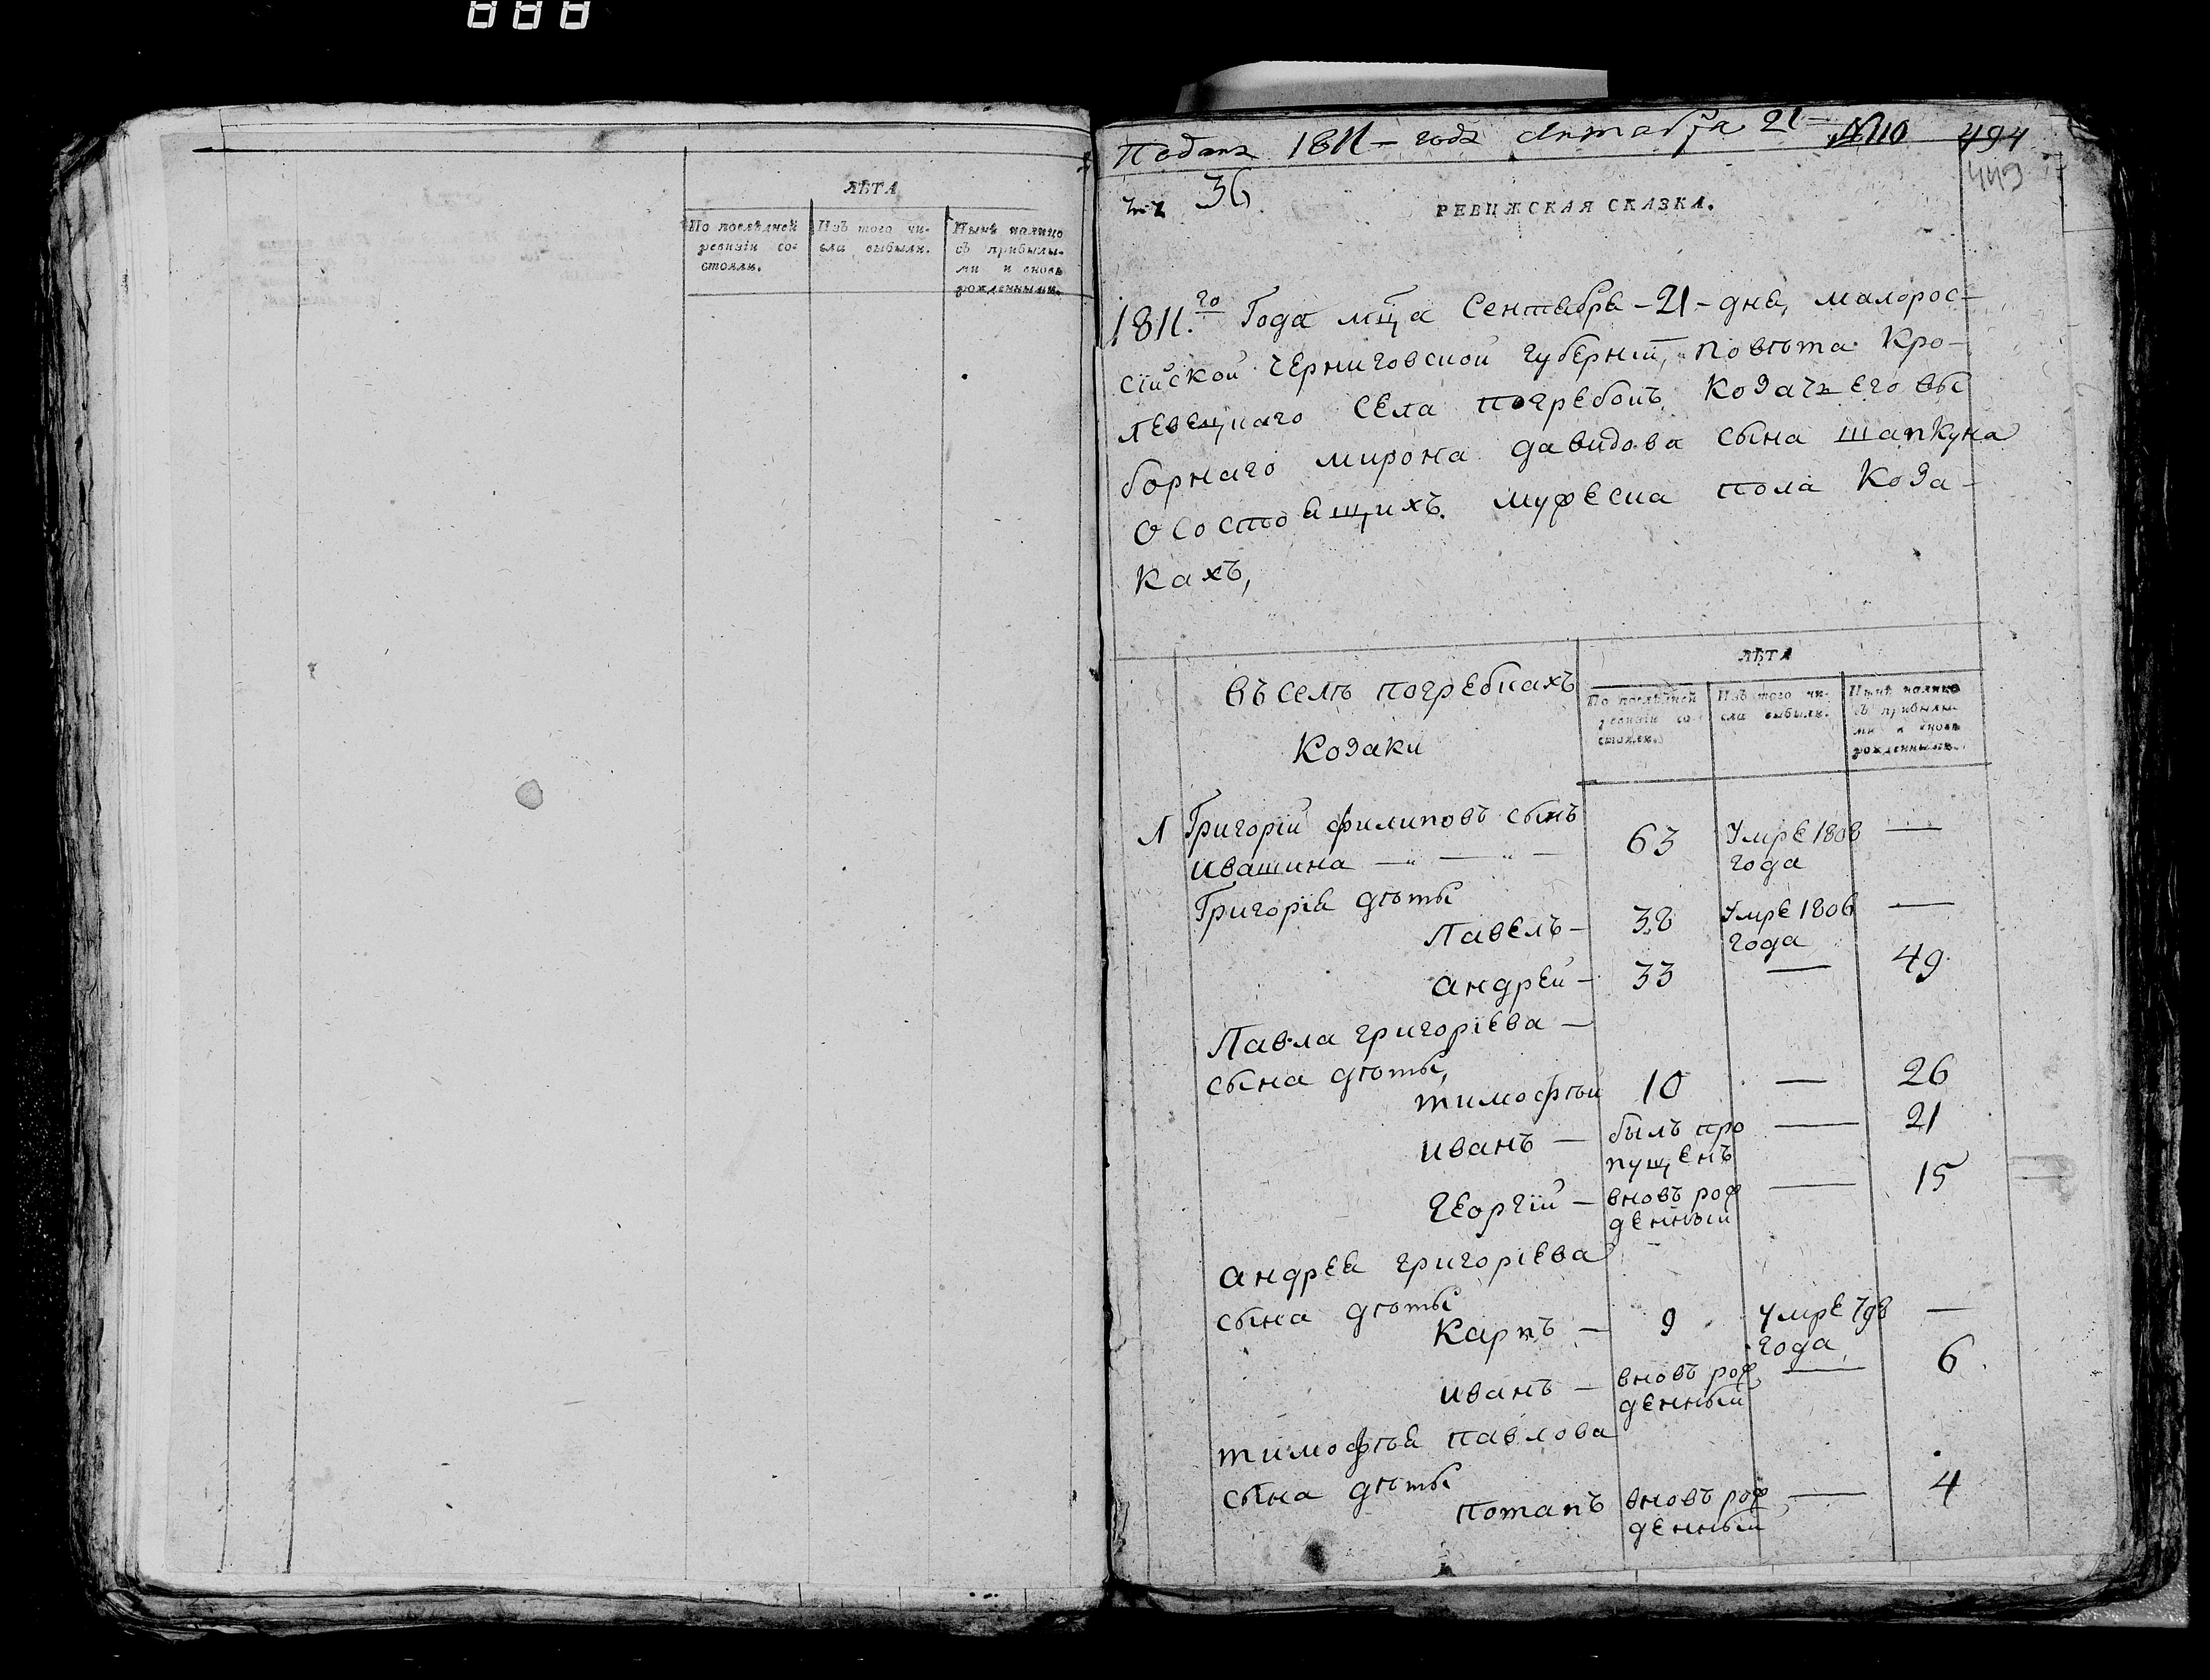 888
ЛѢТА
По послѣдней ревизіи состояли.
Изъ того числа выбыли.
Нынѣ налицо съ прибылыми и вновь рожденными.
Поданъ 1811 – года октабря 21 – №110 494
443
36
РЕВИЖСКАЯ СКАЗКА.
1811.го Года мца Сентября – 21 – дня, малорос–
сійской Черниговской губерніи, повѣта Кро–
левецкаго села погребокъ козачьего вы
борнаго мирона давидова сына шапкуна
о состоящихъ мужеска пола Коза–
кахъ,
ЛѢТА
По послѣдней ревизіи состояли.
Изъ того числа выбыли.
Нынѣ налицо съ прибылыми и вновь рожденными.
въ селѣ погребкахъ
Козаки
1 Григорій филиповъ сынъ
ивашина — 63 Умре 1808 года —
Григорія дѣты
Павелъ – 38 Умре 1806 года —
андрей – 33 — 49
Павла григоріева –
сына дѣты,
тимофѣй 10 — 26
иванъ — былъ про пущенъ — 21
Георгій – вновъ рож денный — 15
андрея григоріева
сына дѣты
Карпъ – 9 Умре 798 года —
иванъ – вновъ рож денный — 6
тимофѣя павлова
сына дѣты
потапъ вновъ рож денный — 4